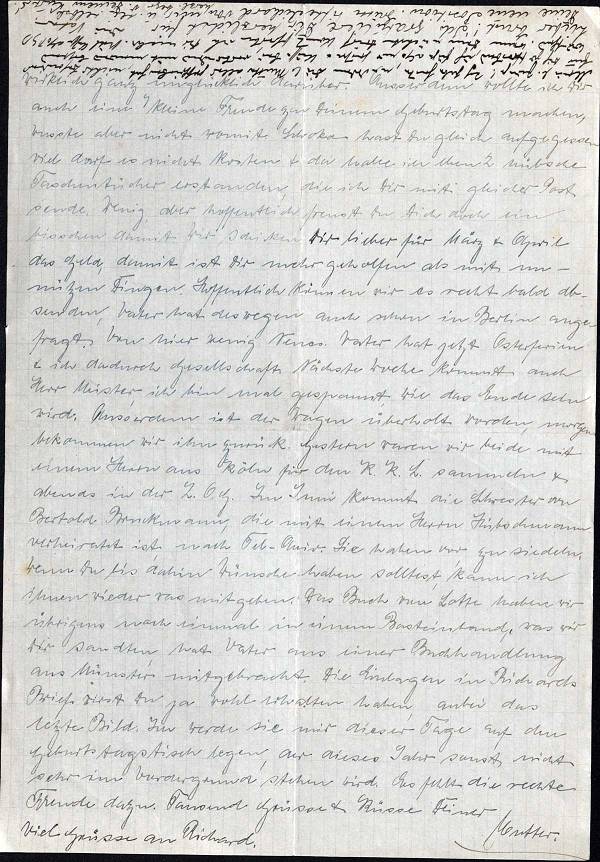 wirklich ganz unglücklich darüber. Ausserdem wollte ich Dir
auch eine kleine Freude zu Deinem Geburtstag machen,
wusste aber nicht womit. Schoko hast Du gleich aufgegessen
viel darf es nicht kosten & da habe ich eben 2 hübsche
Taschentücher erstanden, die ich Dir mit gleicher Post
sende. Wenig aber hoffentlich freust Du Dich doch ein
bisschen damit. Wir schicken Dir lieber für März & April
das Geld, damit ist Dir mehr geholfen als mit un-
nützen Dingen. Hoffentlich können wir es recht bald ab-
senden, Vater hat deswegen auch schon in Berlin ange-
fragt. Von hier wenig Neues. Vater hat jetzt Osterferien
& ich dadurch Gesellschaft. Nächste Woche kommt auch
Herr Meister ich bin mal gespannt wie das Ende sein
wird. Ausserdem ist der Wagen überholt worden, morgen
bekommen wir ihn zurück. Gestern waren wir beide mit
einem Herrn aus Köln für den K. K. L. sammeln &
abends in der Z. O. G. Im Juni kommt die Schwester von
Bertold Bruckmann, die mit einem Herrn
verheiratet ist, nach Tel-Aviv. Sie haben vor zu siedeln.
Wenn Du bis dahin Wünsche haben solltest, kann ich
ihnen wieder was mitgeben. Das Buch von Lotte haben wir
übrigens noch einmal in einem was wir
Dir sandten hat Vater aus einer Buchhandlung
aus Münster mitgebracht. Die Einlagen in Richards
Brief wirst Du ja wohl erhalten haben, anbei das
letzte Bild. Ich werde sie mir dieser Tage auf den
Geburtstagstisch legen, der dieses Jahr sonst nicht
sehr im Vordergrund stehen wird. Es fehlt die rechte
Freude dazu. Tausend Grüsse & Küsse Deiner
Mutter.
Viel Grüsse an Richard.